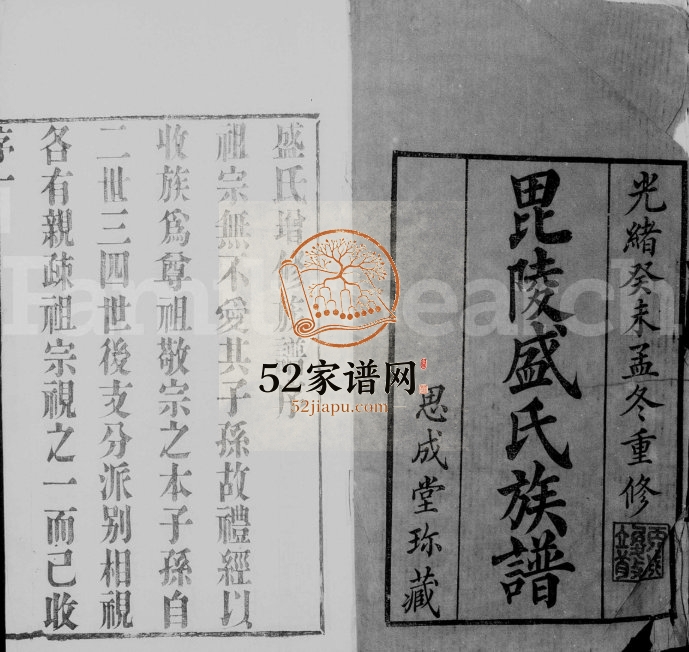 光緒癸未孟冬重修
毘陵盛氏族譜
思成堂珎藏
盛氏增修族譜序
祖宗無不愛其子孫故禮經以
收族爲尊祖敬宗之本子孫自
二世三四世後支分派別相視
各有親疎祖宗視之一而已收
序一
52家谱网
52jiapu.com
FamilySearch